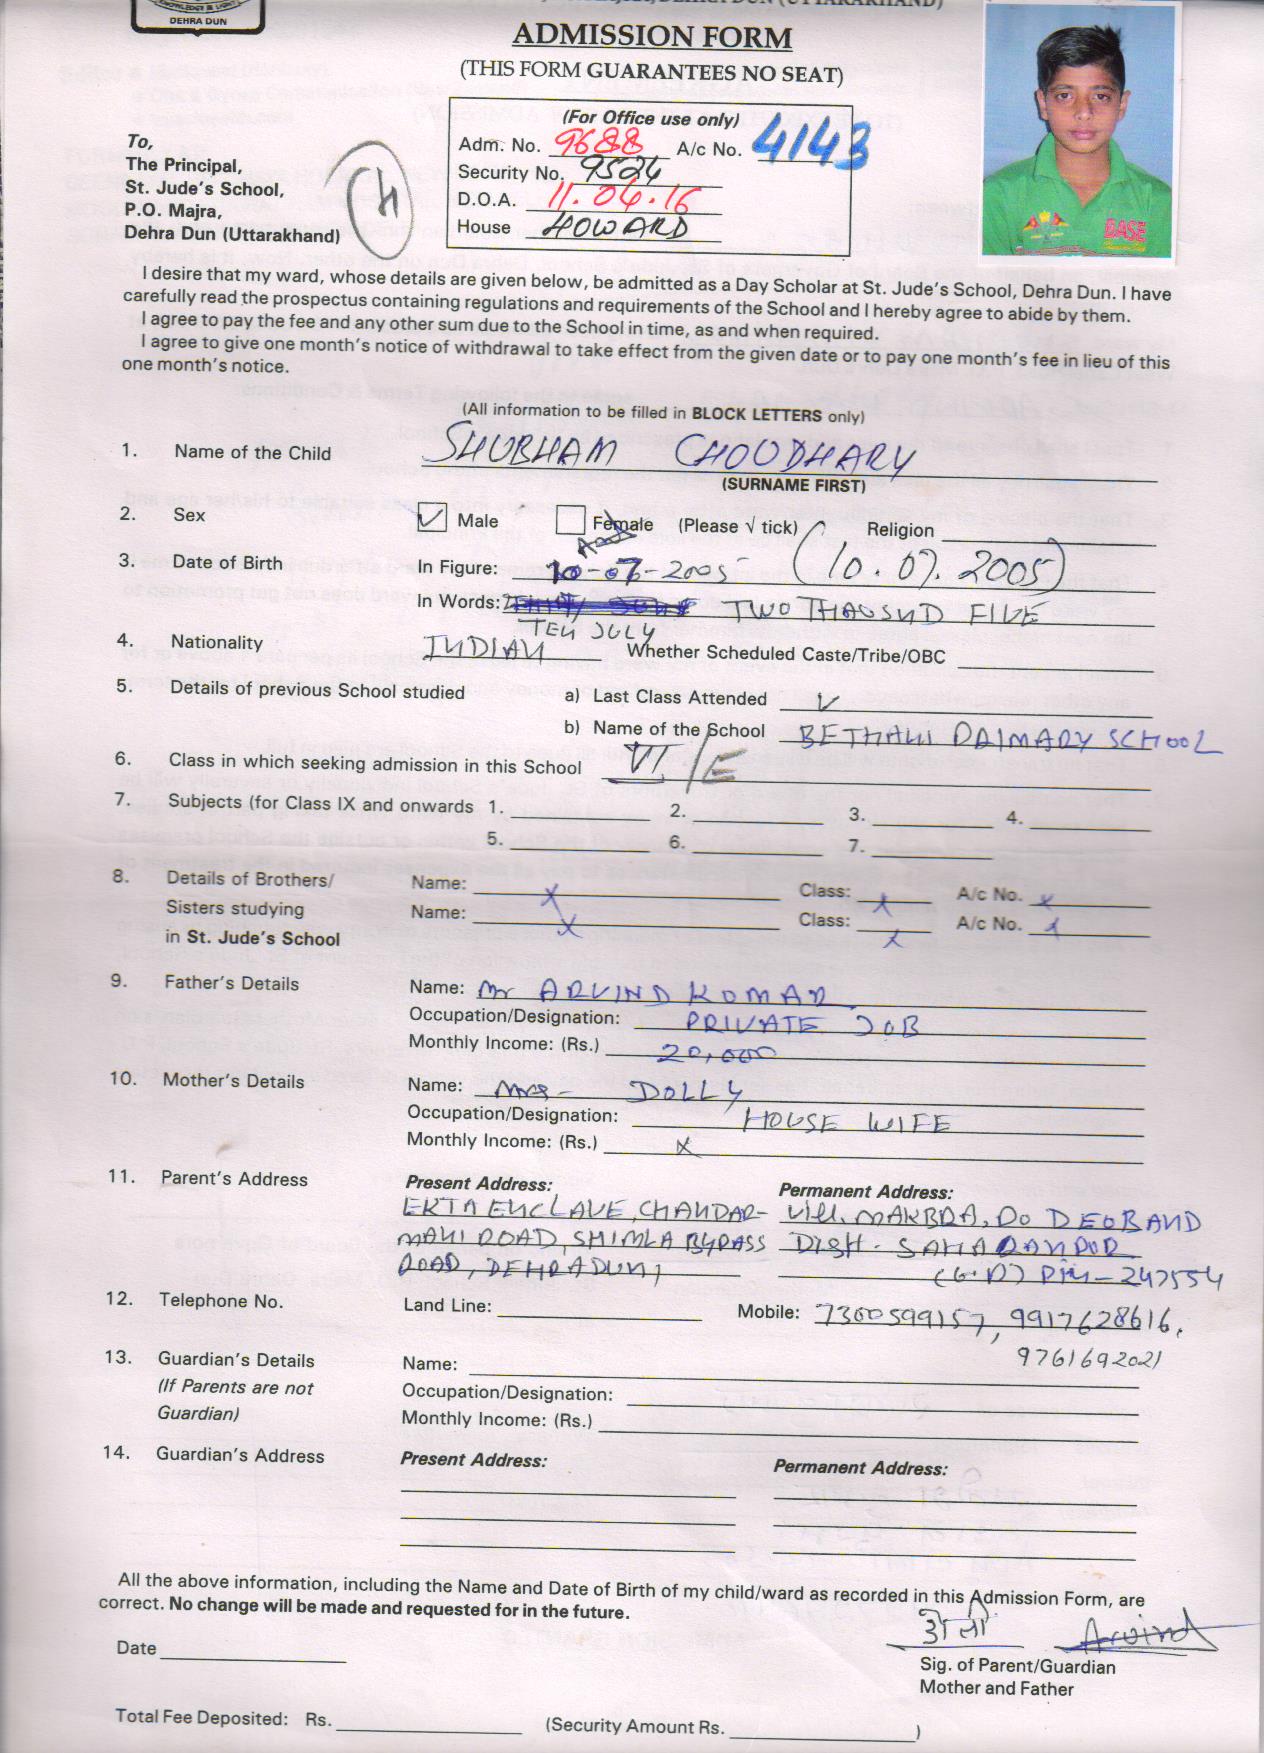 KNOWLEDGE IS LIGHT
DEHRA DUN
DEHRA DUN (UTTARAKHAND)
ADMISSION FORM
(THIS FORM GUARANTEES NO SEAT)
(For Office use only)
Adm. No. 9688 A/c No. 4143
Security No. 9524
D.O.A. 11.04.16
House HOWARD
To,
The Principal,
St. Jude's School,
P.O. Majra,
Dehra Dun (Uttarakhand)
BASE
I desire that my ward, whose details are given below, be admitted as a Day Scholar at St. Jude's School, Dehra Dun. I have
carefully read the prospectus containing regulations and requirements of the School and I hereby agree to abide by them.
I agree to pay the fee and any other sum due to the School in time, as and when required.
I agree to give one month's notice of withdrawal to take effect from the given date or to pay one month's fee in lieu of this
one month's notice.
(All information to be filled in BLOCK LETTERS only)
1. Name of the Child SHUBHAM CHOUDHARY
(SURNAME FIRST)
2. Sex ✓ Male Female (Please √ tick) Religion
3. Date of Birth In Figure: 10-07-2005 (10.07.2005)
In Words: TWO THAUSND FIVE
TEN JULY
4. Nationality INDIAN Whether Scheduled Caste/Tribe/OBC
5. Details of previous School studied a) Last Class Attended V
b) Name of the School BETHANI PRIMARY SCHOOL
6. Class in which seeking admission in this School VI/E
7. Subjects (for Class IX and onwards 1. 2. 3. 4.
5. 6. 7.
8. Details of Brothers/ Name: x Class: x A/c No. x
Sisters studying Name: x Class: x A/c No. x
in St. Jude's School
9. Father's Details Name: Mr ARVIND KUMAR
Occupation/Designation: PRIVATE JOB
Monthly Income: (Rs.) 20,000
10. Mother's Details Name: Mrs- DOLLY
Occupation/Designation: HOUSE WIFE
Monthly Income: (Rs.) x
11. Parent's Address Present Address: Permanent Address:
EKTA ENCLAVE, CHANDAR- Vill. MAKBRA, PO DEOBAND
MANI ROAD, SHIMLA BYPASS Distt- SAHARANPUR
ROAD, DEHRADUN, (U.P) Pin-247554
12. Telephone No. Land Line: Mobile: 7300599157, 9917628616,
9761692021
13. Guardian's Details Name:
(If Parents are not Occupation/Designation:
Guardian) Monthly Income: (Rs.)
14. Guardian's Address Present Address: Permanent Address:
All the above information, including the Name and Date of Birth of my child/ward as recorded in this Admission Form, are
correct. No change will be made and requested for in the future.
Arvind
Date
Sig. of Parent/Guardian
Mother and Father
Total Fee Deposited: Rs. (Security Amount Rs. )